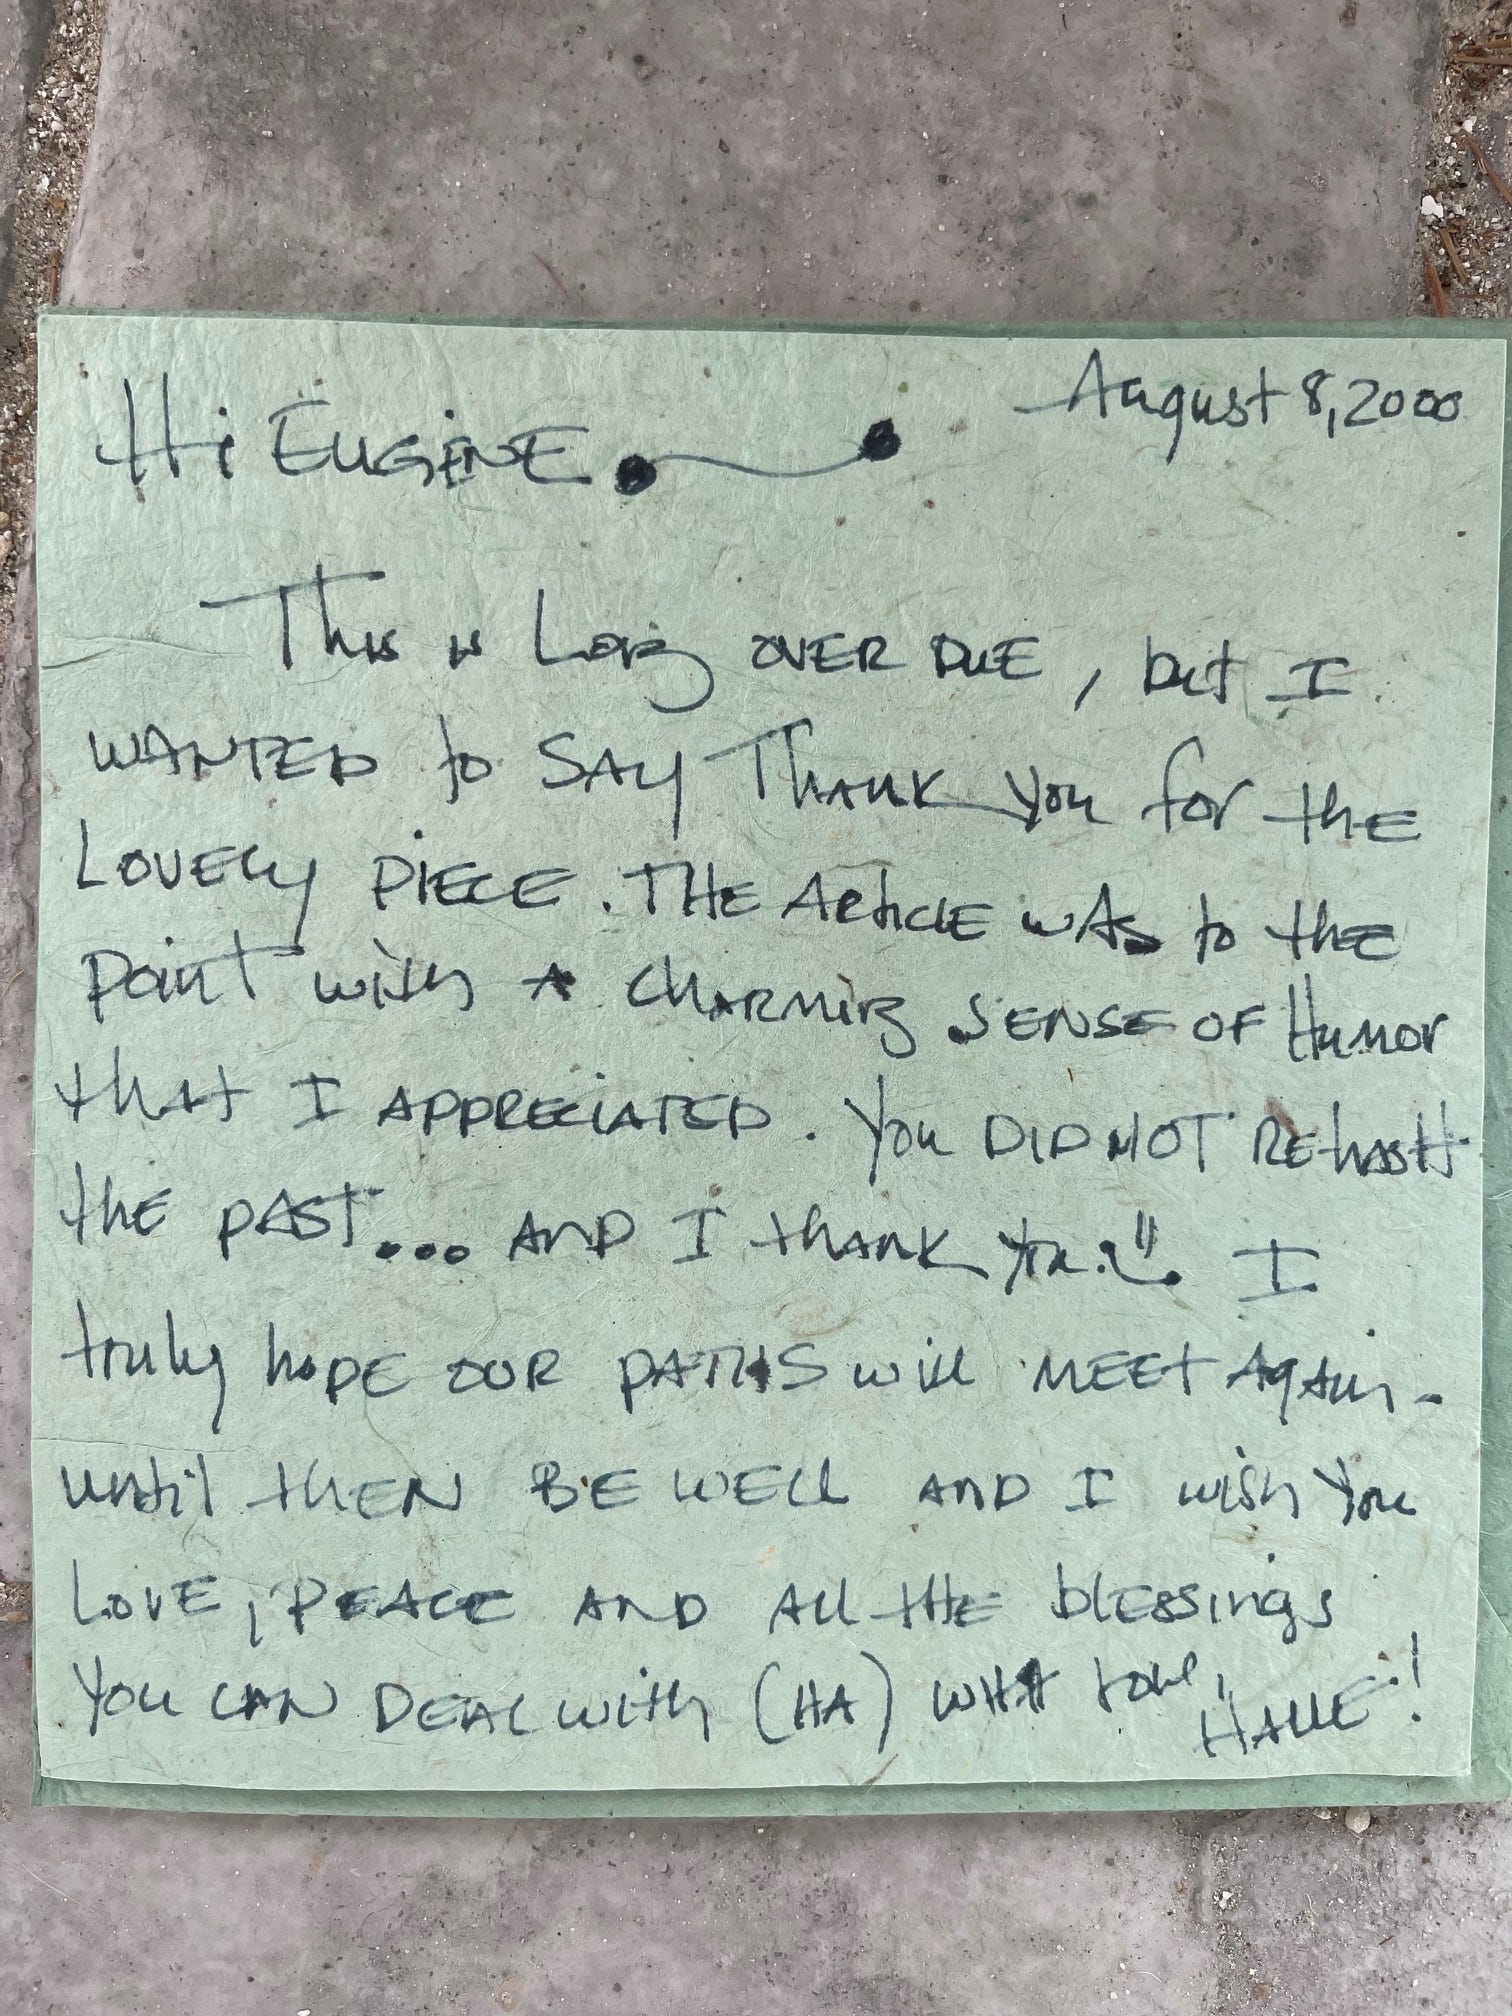 August 8, 2000
Hi EUGENE
This is Long OVER DUE, but I
WANTED to SAY THANK you for the
LOVELY PIECE. THE ARticLE WAS to the
point with A CHARMING SENSE OF Humor
that I APPRECIATED. You DID NOT REHASH
the PAST... AND I thANK you. I
truly hoPE OUR PATHS will MEET AgAin.
until thEN BE WELL AND I wish You
LOVE, PEACE AND All tHE blEssings
You CAN DEAL with (HA) WITH love,
HALLE!